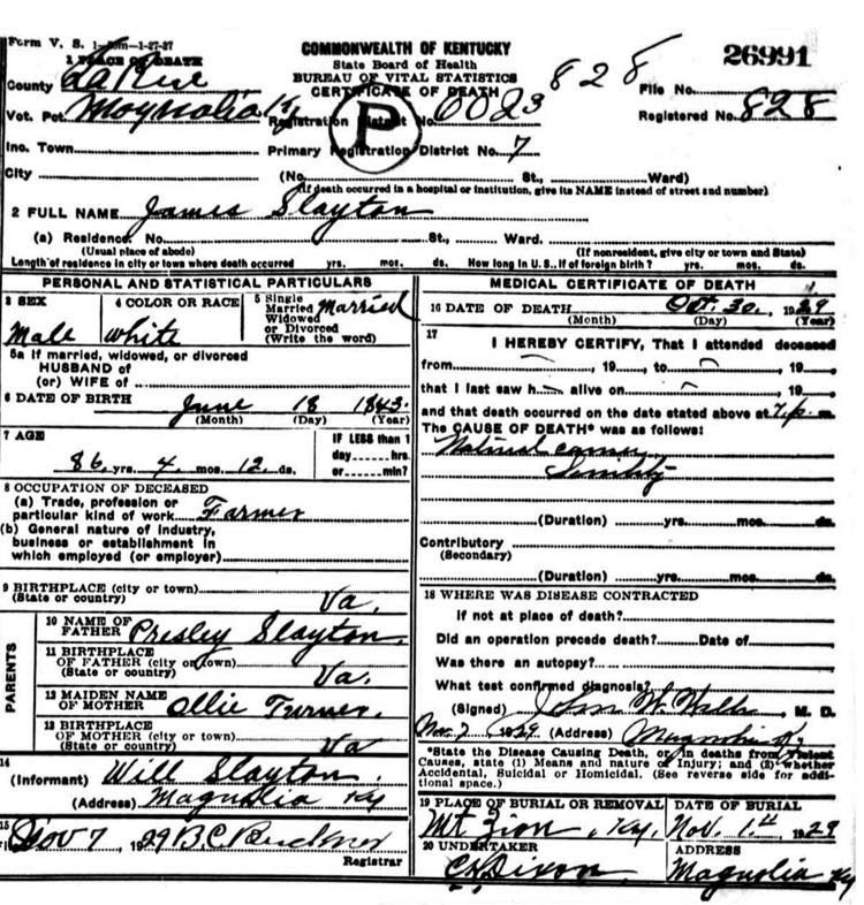 Form V. S. 1-
COMMONWEALTH OF KENTUCKY
State Board of Health
BUREAU OF VITAL STATISTICS
CERTIFICATE OF DEATH
828
26991
1 PLACE OF DEATH
County LaRue
File No.
Vot. Pct. Magnolia Ky
Registration District No. 6023
Registered No. 828
P
Inc. Town
Primary Registration District No. 7
City (No. St., Ward)
(If death occurred in a hospital or institution, give its NAME instead of street and number)
2 FULL NAME James Slayton
(a) Residence. No. St., Ward.
(Usual place of abode) (If nonresident, give city or town and State)
Length of residence in city or town where death occurred yrs. mos. ds. How long in U. S., if of foreign birth? yrs. mos. ds.
PERSONAL AND STATISTICAL PARTICULARS
3 SEX
Male
4 COLOR OR RACE
white
5 Single
Married
Widowed
or Divorced
(Write the word)
Married
5a If married, widowed, or divorced
HUSBAND of
(or) WIFE of
6 DATE OF BIRTH
June 18 1843.
(Month) (Day) (Year)
7 AGE
86 yrs. 4 mos. 12 ds.
IF LESS than 1
day hrs.
or min?
8 OCCUPATION OF DECEASED
(a) Trade, profession or
particular kind of work Farmer
(b) General nature of industry,
business or establishment in
which employed (or employer)
9 BIRTHPLACE (city or town)
(State or country) Va.
PARENTS
10 NAME OF
FATHER Presley Slayton.
11 BIRTHPLACE
OF FATHER (city or town)
(State or country) Va.
12 MAIDEN NAME
OF MOTHER Ollie Turner.
13 BIRTHPLACE
OF MOTHER (city or town)
(State or country) Va
14
(Informant) Will Slayton.
(Address) Magnolia Ky
15
Nov 7, 1929 B.C. Buckner
Registrar
MEDICAL CERTIFICATE OF DEATH
16 DATE OF DEATH Oct. 30, 1929
(Month) (Day) (Year)
17
I HEREBY CERTIFY, That I attended deceased
from , 19 , to , 19 ,
that I last saw h alive on , 19 ,
and that death occurred on the date stated above at 7 p. m.
The CAUSE OF DEATH* was as follows:
Natural causes
Senility
(Duration) yrs. mos. ds.
Contributory
(Secondary)
(Duration) yrs. mos. ds.
18 WHERE WAS DISEASE CONTRACTED
If not at place of death?
Did an operation precede death? Date of
Was there an autopsy?
What test confirmed diagnosis?
(Signed) W. , M. D.
Nov. 7, 1929 (Address) Magnolia Ky.
*State the Disease Causing Death, or in deaths from Violent
Causes, state (1) Means and nature of Injury; and (2) whether
Accidental, Suicidal or Homicidal. (See reverse side for addi-
tional space.)
19 PLACE OF BURIAL OR REMOVAL
Mt Zion, Ky.
DATE OF BURIAL
Nov. 1st 1929
20 UNDERTAKER
Dixon.
ADDRESS
Magnolia Ky